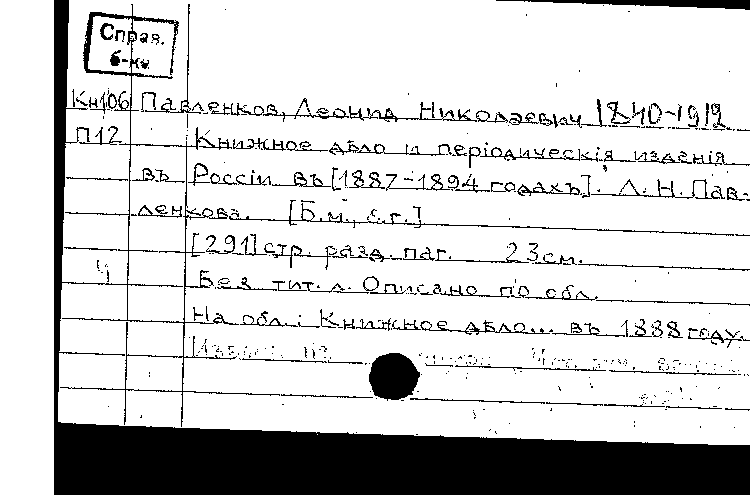 Справ.
б-ки
Кн106 Павленков, Леонид Николаевич 1840-1912
П12 Книжное дѣло и періодическія изданія
въ Россіи въ [1887-1894 годахъ]. Л. Н. Пав-
ленкова. [Б.м., б.г.]
[291] стр. разд. паг. 23 см.
Без тит. л. Описано по обл.
На обл.: Книжное дѣло... въ 1888 году.